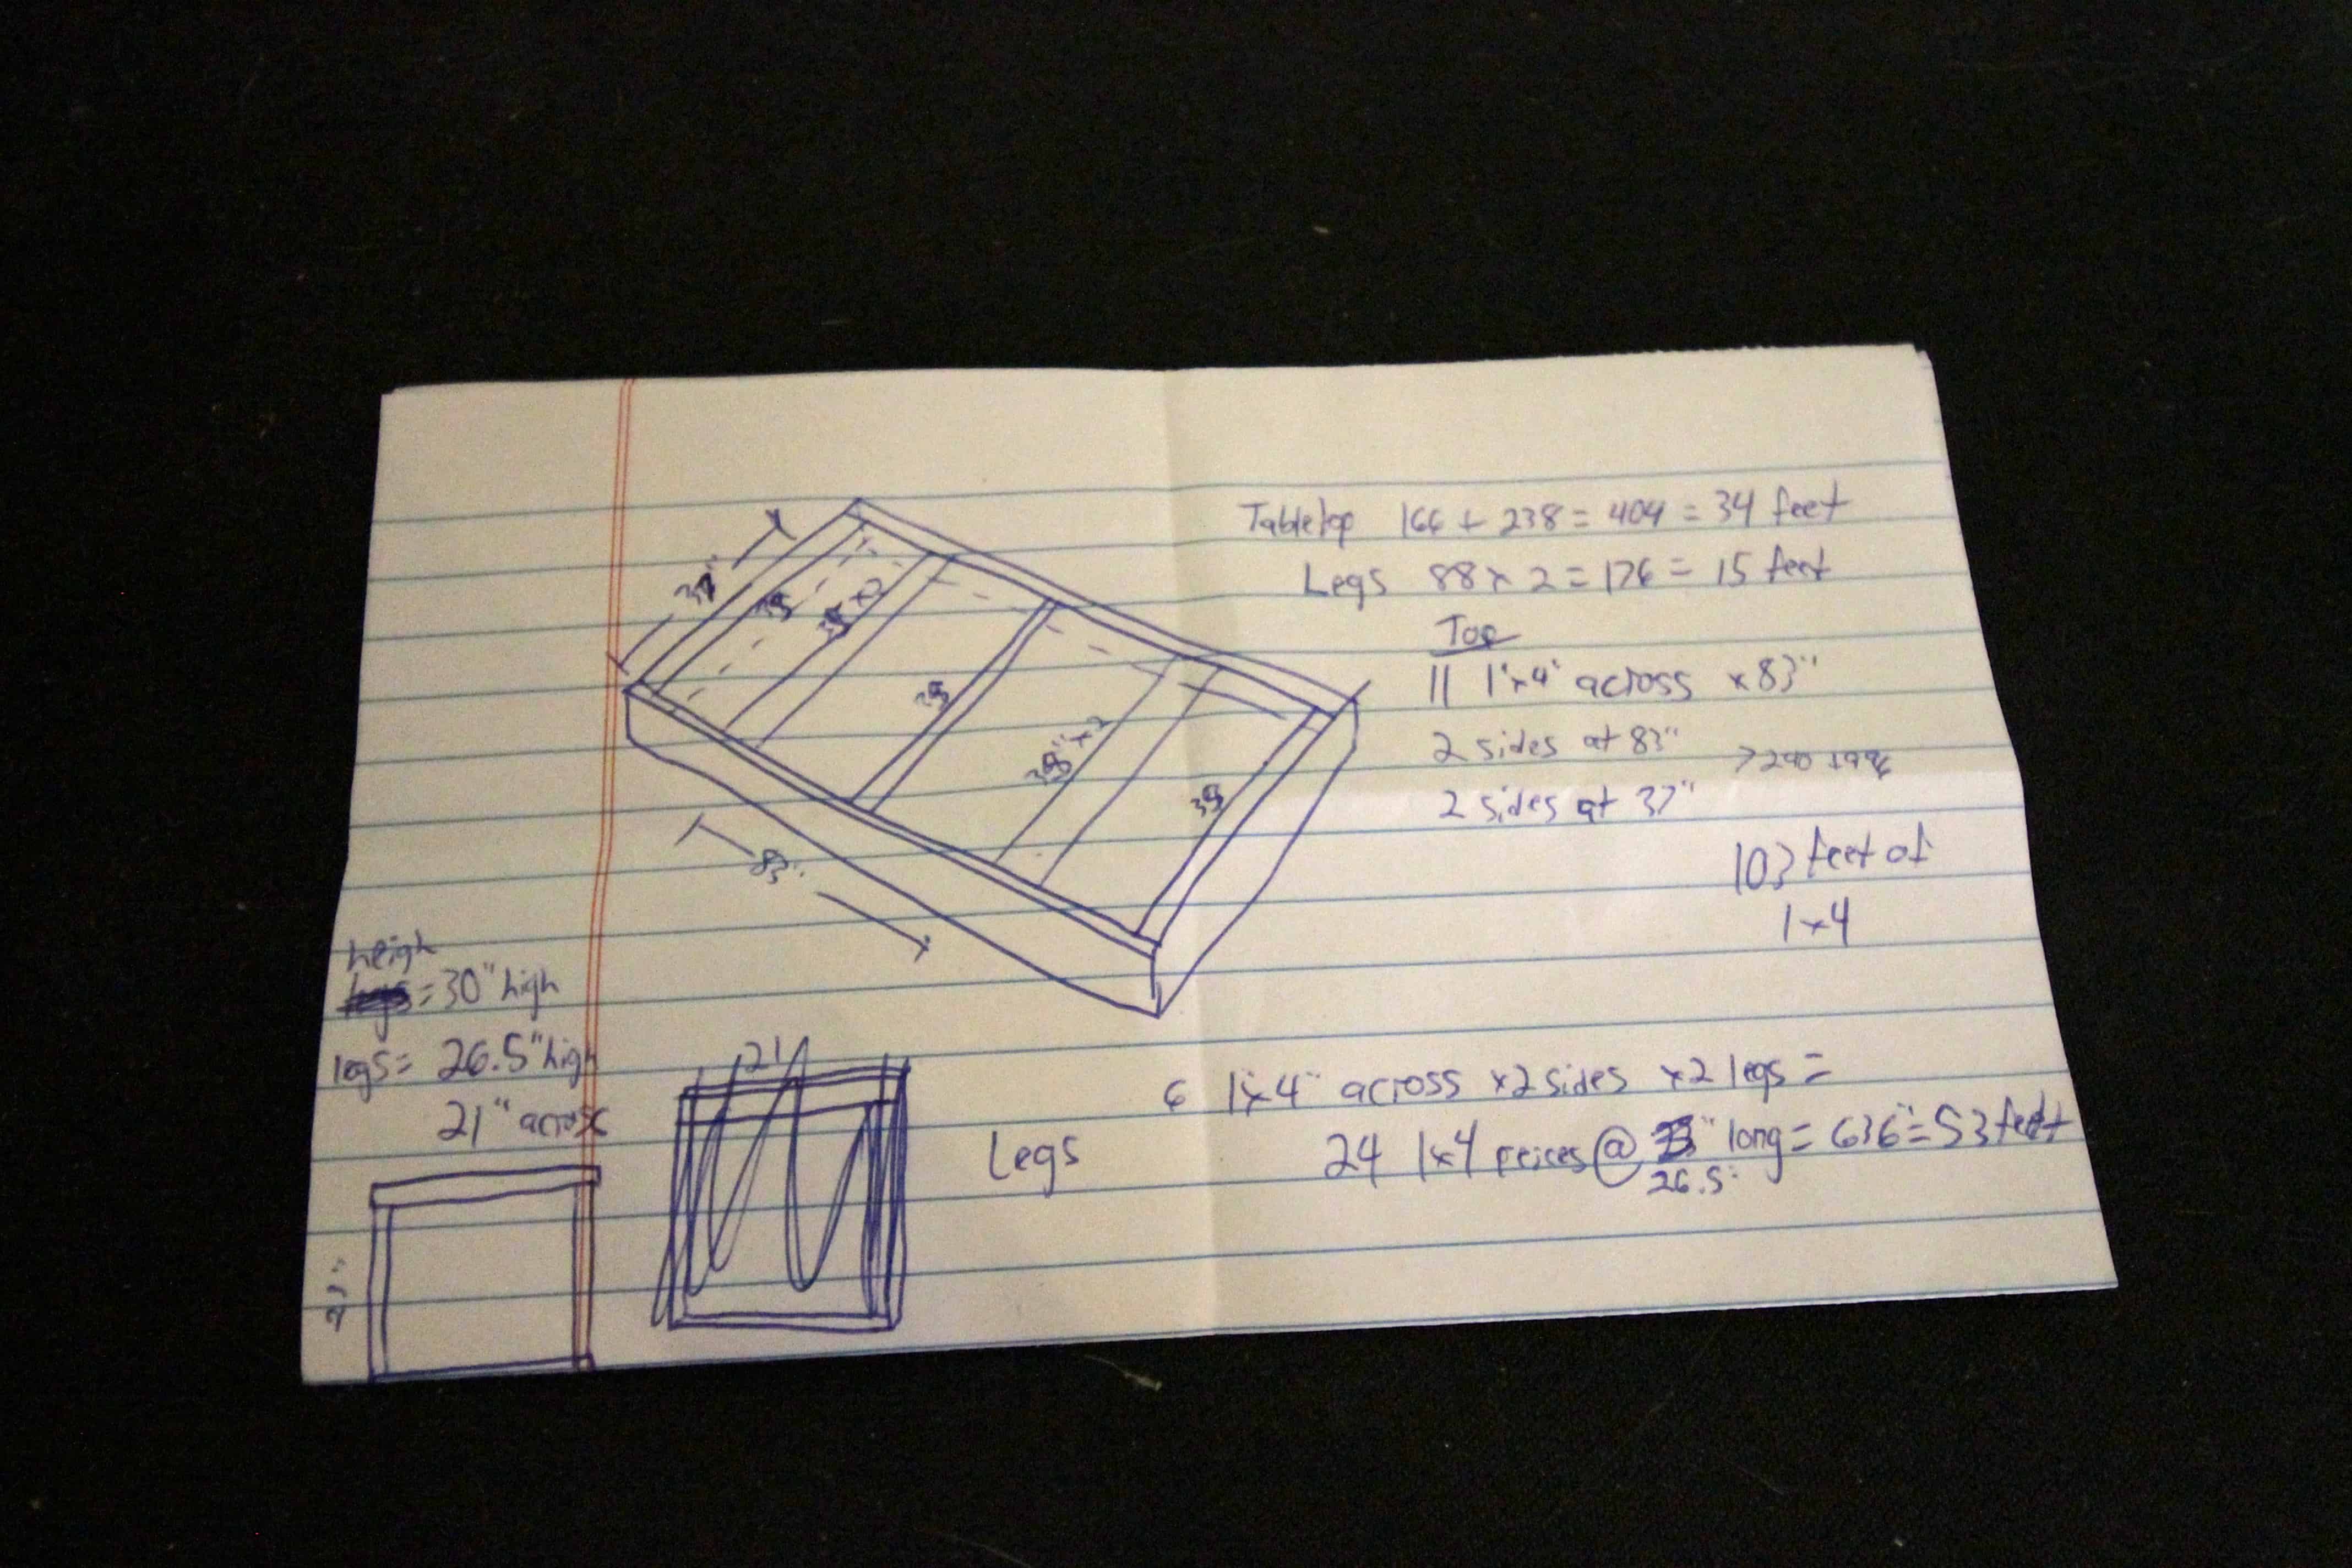 Tabletop 166 + 238 = 404 = 34 feet
Legs 88 x 2 = 176 = 15 feet
Top
11 1"x4" across x83"
2 sides at 83"
2 sides at 37"
103 feet of
1x4
38" x 2
83"
heigh
= 30" high
legs = 26.5" high
21" across
21"
Legs
6 1"x4" across x2 sides x2 legs =
24 1x4 peices @ " long = 636" = 53 feet
26.5"